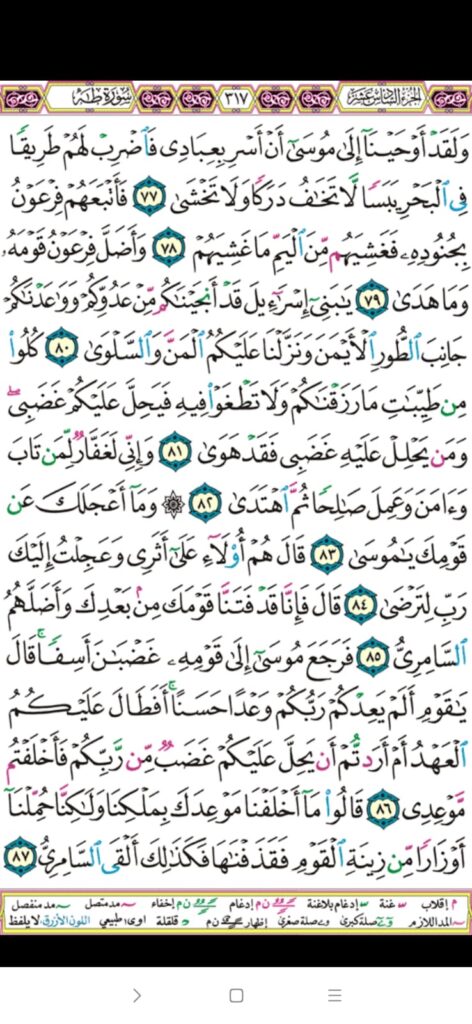 الجزء السادس عشر ٣١٧ سورة طه
وَلَقَدْ أَوْحَيْنَآ إِلَىٰ مُوسَىٰٓ أَنْ أَسْرِ بِعِبَادِى فَٱضْرِبْ لَهُمْ طَرِيقًا
فِى ٱلْبَحْرِ يَبَسًا لَّا تَخَٰفُ دَرَكًا وَلَا تَخْشَىٰ ٧٧ فَأَتْبَعَهُمْ فِرْعَوْنُ
بِجُنُودِهِۦ فَغَشِيَهُم مِّنَ ٱلْيَمِّ مَا غَشِيَهُمْ ٧٨ وَأَضَلَّ فِرْعَوْنُ قَوْمَهُۥ
وَمَا هَدَىٰ ٧٩ يَٰبَنِىٓ إِسْرَٰٓءِيلَ قَدْ أَنجَيْنَٰكُم مِّنْ عَدُوِّكُمْ وَوَٰعَدْنَٰكُمْ
جَانِبَ ٱلطُّورِ ٱلْأَيْمَنَ وَنَزَّلْنَا عَلَيْكُمُ ٱلْمَنَّ وَٱلسَّلْوَىٰ ٨٠ كُلُوا۟
مِن طَيِّبَٰتِ مَا رَزَقْنَٰكُمْ وَلَا تَطْغَوْا۟ فِيهِ فَيَحِلَّ عَلَيْكُمْ غَضَبِى ۖ
وَمَن يَحْلِلْ عَلَيْهِ غَضَبِى فَقَدْ هَوَىٰ ٨١ وَإِنِّى لَغَفَّارٌ لِّمَن تَابَ
وَءَامَنَ وَعَمِلَ صَٰلِحًا ثُمَّ ٱهْتَدَىٰ ٨٢ ۞ وَمَآ أَعْجَلَكَ عَن
قَوْمِكَ يَٰمُوسَىٰ ٨٣ قَالَ هُمْ أُو۟لَآءِ عَلَىٰٓ أَثَرِى وَعَجِلْتُ إِلَيْكَ
رَبِّ لِتَرْضَىٰ ٨٤ قَالَ فَإِنَّا قَدْ فَتَنَّا قَوْمَكَ مِنۢ بَعْدِكَ وَأَضَلَّهُمُ
ٱلسَّامِرِىُّ ٨٥ فَرَجَعَ مُوسَىٰٓ إِلَىٰ قَوْمِهِۦ غَضْبَٰنَ أَسِفًا ۚ قَالَ
يَٰقَوْمِ أَلَمْ يَعِدْكُمْ رَبُّكُمْ وَعْدًا حَسَنًا ۚ أَفَطَالَ عَلَيْكُمُ
ٱلْعَهْدُ أَمْ أَرَدتُّمْ أَن يَحِلَّ عَلَيْكُمْ غَضَبٌ مِّن رَّبِّكُمْ فَأَخْلَفْتُم
مَّوْعِدِى ٨٦ قَالُوا۟ مَآ أَخْلَفْنَا مَوْعِدَكَ بِمَلْكِنَا وَلَٰكِنَّا حُمِّلْنَآ
أَوْزَارًا مِّن زِينَةِ ٱلْقَوْمِ فَقَذَفْنَٰهَا فَكَذَٰلِكَ أَلْقَى ٱلسَّامِرِىُّ ٨٧
م إقلاب غنة إدغام بلاغنة ن م إدغام ن م إخفاء مد متصل مد منفصل
المد اللازم صلة كبرى وصلة صغرى إظهار ن م قلقلة اوى طبيعي اللون الأزرق لا يلفظ